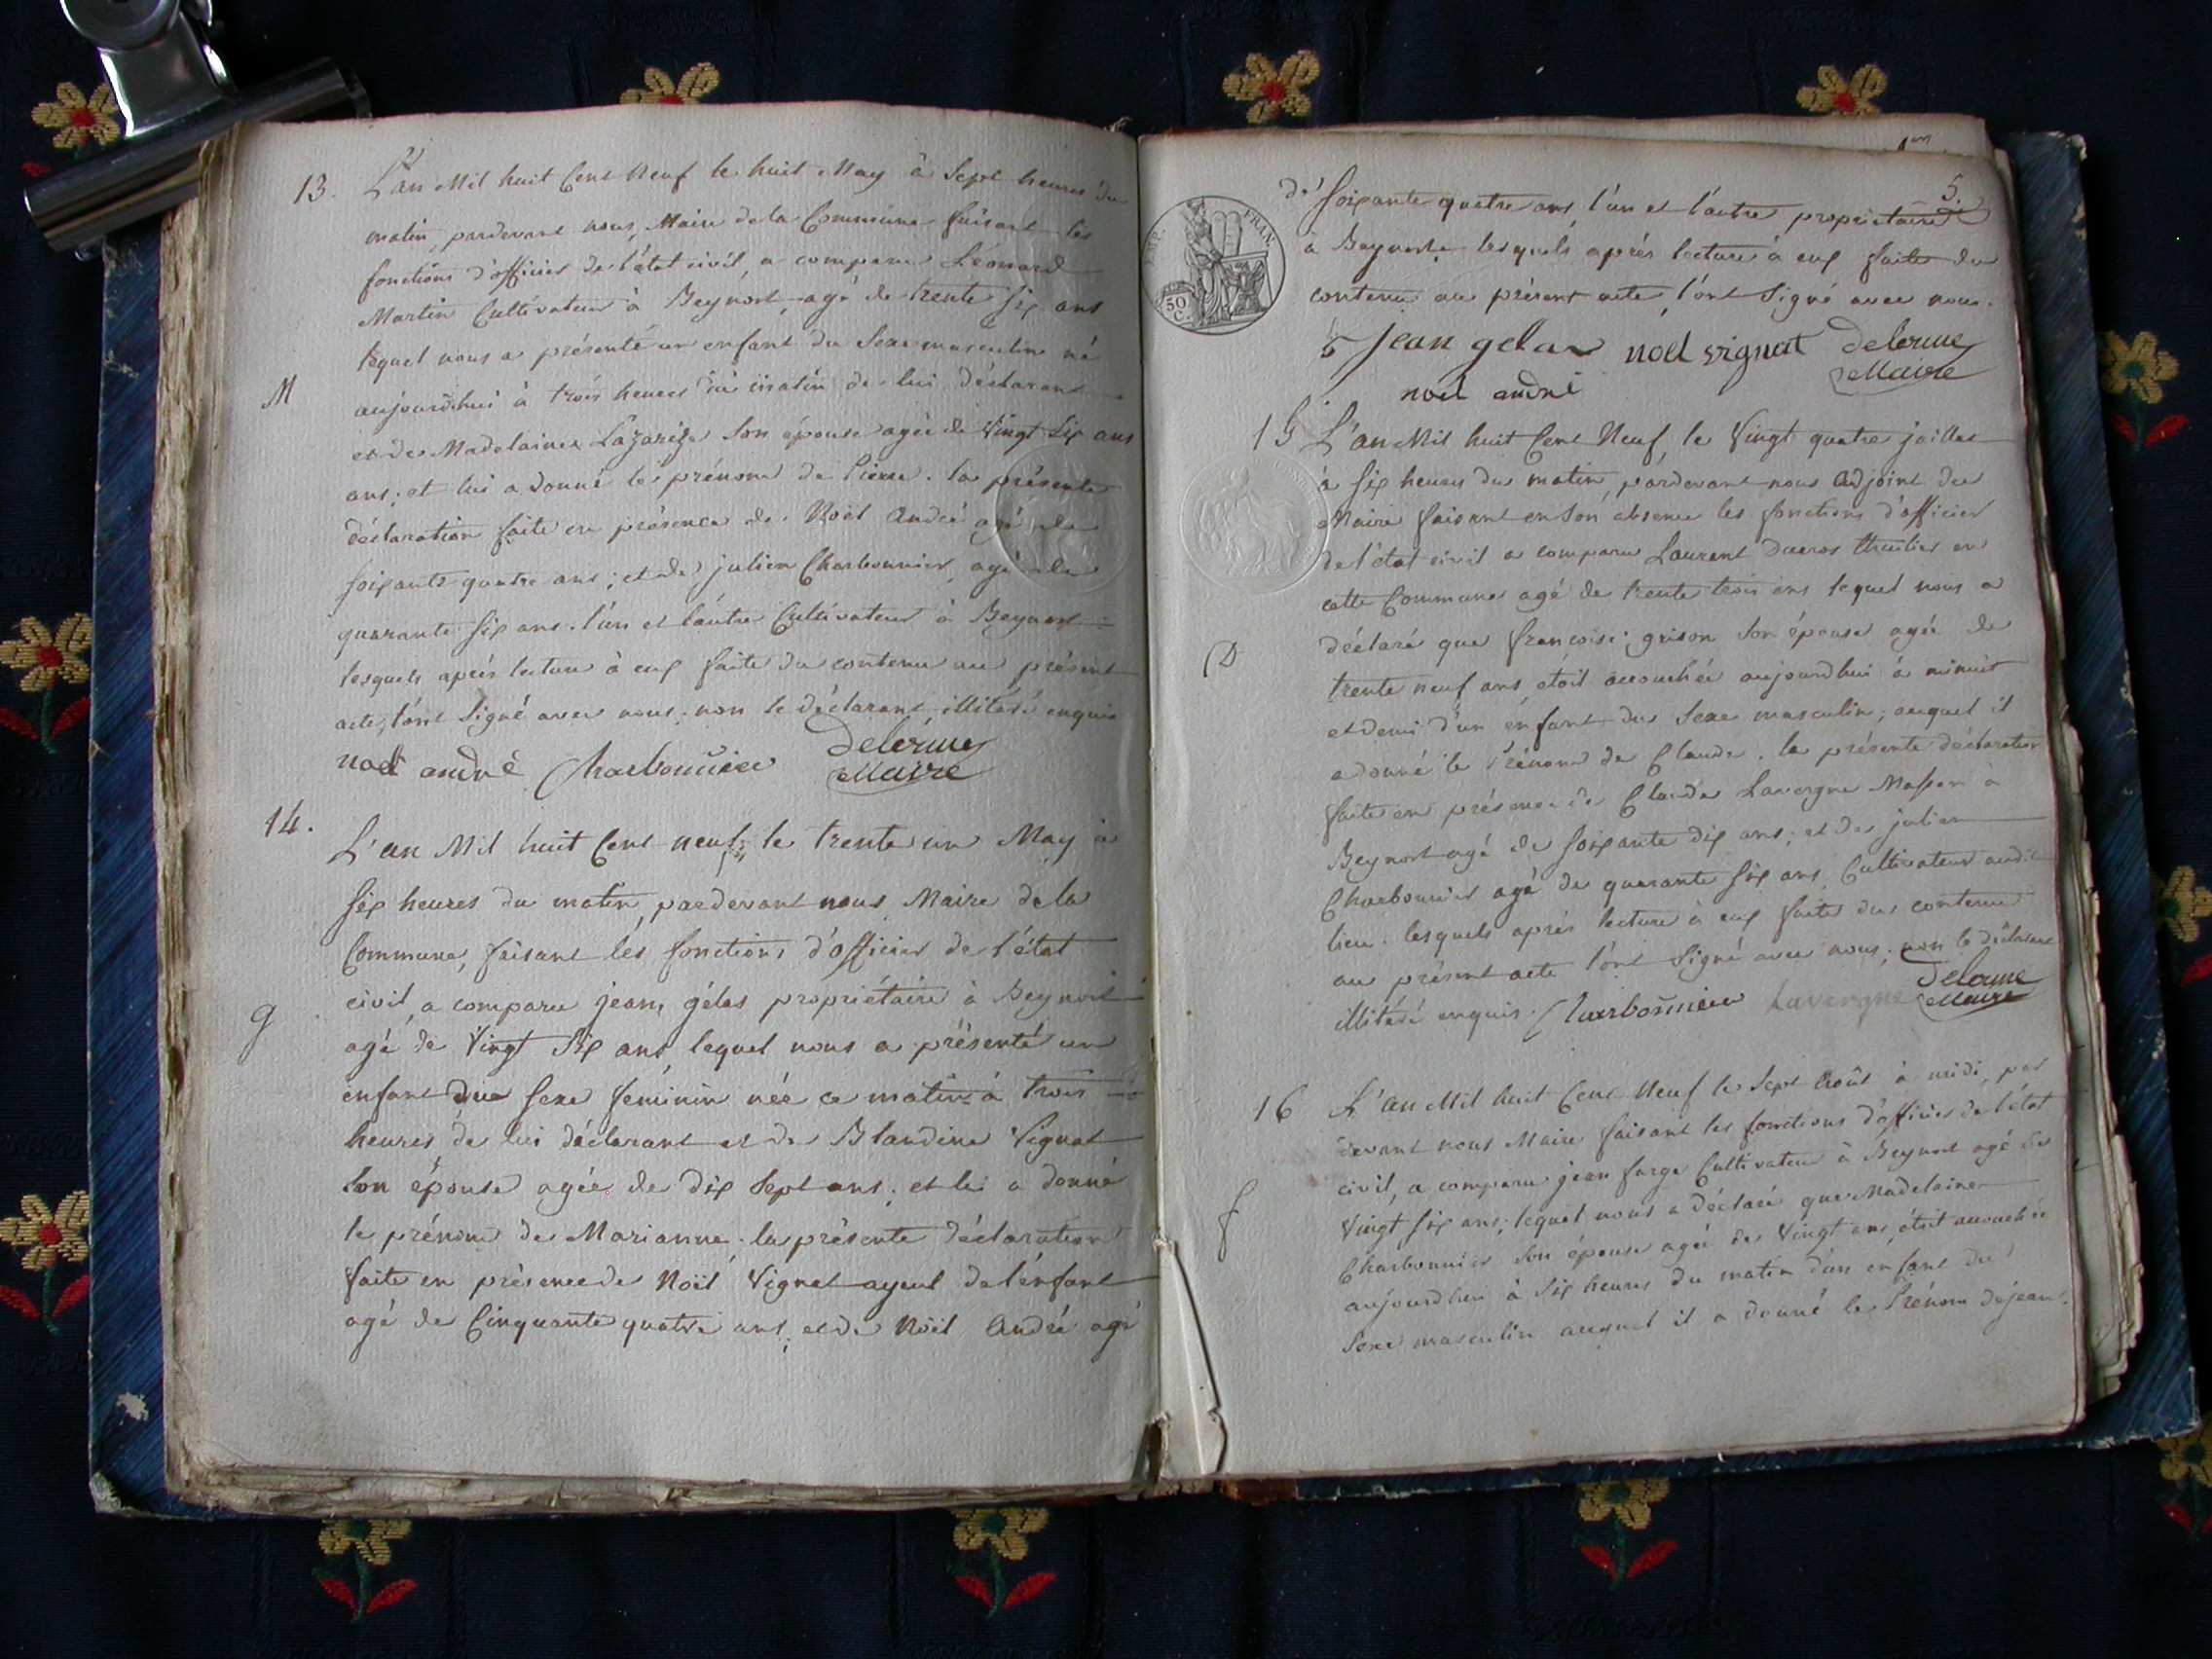 13. L'an Mil huit Cent Neuf le huit May à Sept heures du
matin, pardevant nous, Maire de la Commune faisant les
fonctions d'officier de l'état civil, a comparu Léonard
Martin Cultivateur à Beynost, agé de trente six ans
lequel nous a présenté un enfant du Sexe masculin né
M
aujourdhui à trois heures du matin de lui déclarant
et de Madelaine Son épouse agée de Vingt Six ans
ans; et lui a donné le prénom de Pierre. la présente
déclaration faite en présence de Noël André agé de
soixante quatre ans; et de julien Charbonnier, agé de
quarante Six ans. l'un et l'autre Cultivateur à Beynost
lesquels après lecture à eux faite du contenu au présent
acte, l'ont Signé avec nous. non le déclarant illitéré enquis
noel andré Charbonnier Delorme
Maire
14.
L'an Mil huit Cent neuf, le trente un May à
Six heures du matin, pardevant nous Maire de la
Commune, faisant les fonctions d'officier de l'état
civil, a comparu jean gélas propriétaire à Beynost
g
agé de Vingt Six ans lequel nous a présenté un
enfant du Sexe féminin née ce matin à trois
heures, de lui déclarant et de Blandine Vignat
Son épouse agée de dix Sept ans; et lui a donné
le prénom de Marianne. la présente déclaration
faite en présence de Noël Vignat ayeul de l'enfant
agé de Cinquante quatre ans; et de Noël André agé
5.
de soixante quatre ans, l'un et l'autre propriétaire
EMP. FRAN.
50
C.
à Beynost. lesquels après lecture à eux faite du
contenu au présent acte, l'ont Signé avec nous.
Jean gelas noel vignat Delorme
Maire
noel andré
15 L'an Mil huit Cent Neuf, le Vingt quatre juillet
à six heures du matin, pardevant nous Adjoint du
Maire faisant en Son absence les fonctions d'officier
de l'état civil a comparu Laurent ducros thuilier en
cette Commune agé de trente trois ans lequel nous a
D
déclaré que françoise grison Son épouse agée de
trente neuf ans étoit accouchée aujourdhui à minuit
et demi d'un enfant du Sexe masculin; auquel il
a donné le Prénom de Claude. la présente déclaration
faite en présence de Claude Lavergne Masson à
Beynost agé de soixante dix ans; et de julien
Charbonnier agé de quarante six ans, Cultivateur audit
lieu. lesquels après lecture à eux faite du contenu
au présent acte l'ont Signé avec nous; non le déclarant
illitéré enquis. Charbonnier Lavergne Delorme
Maire
16 L'an Mil huit Cent Neuf le Sept Août à midi, par
devant nous Maire faisant les fonctions d'officier de l'état
civil, a comparu jean farge Cultivateur à Beynost agé de
f
Vingt six ans; lequel nous a déclaré que Madelaine
Charbonnier Son épouse agée de Vingt ans, étoit accouchée
aujourdhui à Six heures du matin d'un enfant du
Sexe masculin auquel il a donné le Prénom de jean.